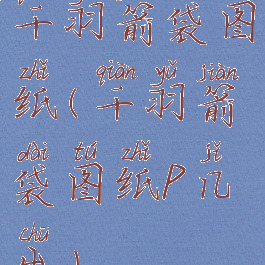 千羽箭袋图
zhǐ qiān yǔ jiàn
纸(千羽箭
dài tú zhǐ jǐ
袋图纸P几
chū
出)